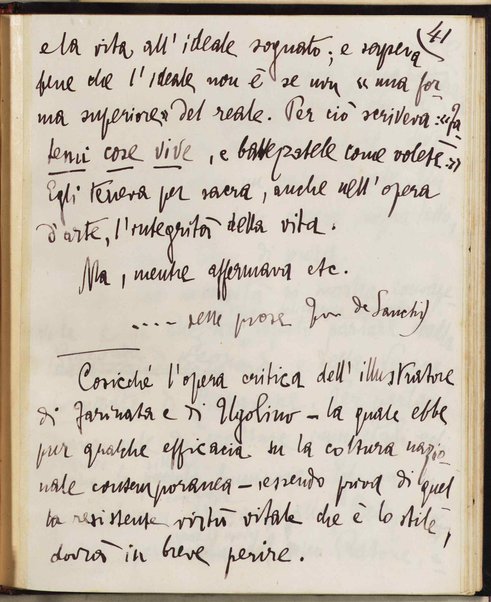 41
e la vita all'ideale sognato; e sapeva
bene che l'ideale non è se non « una for-
ma superiore » del reale. Per ciò scriveva: « Fa-
temi cose vive, e battezzatele come volete. »
Egli teneva per sacra, anche nell'opera
d'arte, l'integrità della vita.
Ma, mentre affermava etc.
.... nelle prose          de Sanctis)
Cosicché l'opera critica dell'illustratore
di Farinata e di Ugolino – la quale ebbe
pur qualche efficacia su la coltura nazio-
nale contemporanea –, essendo priva di quel-
la resistente virtù vitale che è lo stile,
dovrà in breve perire.